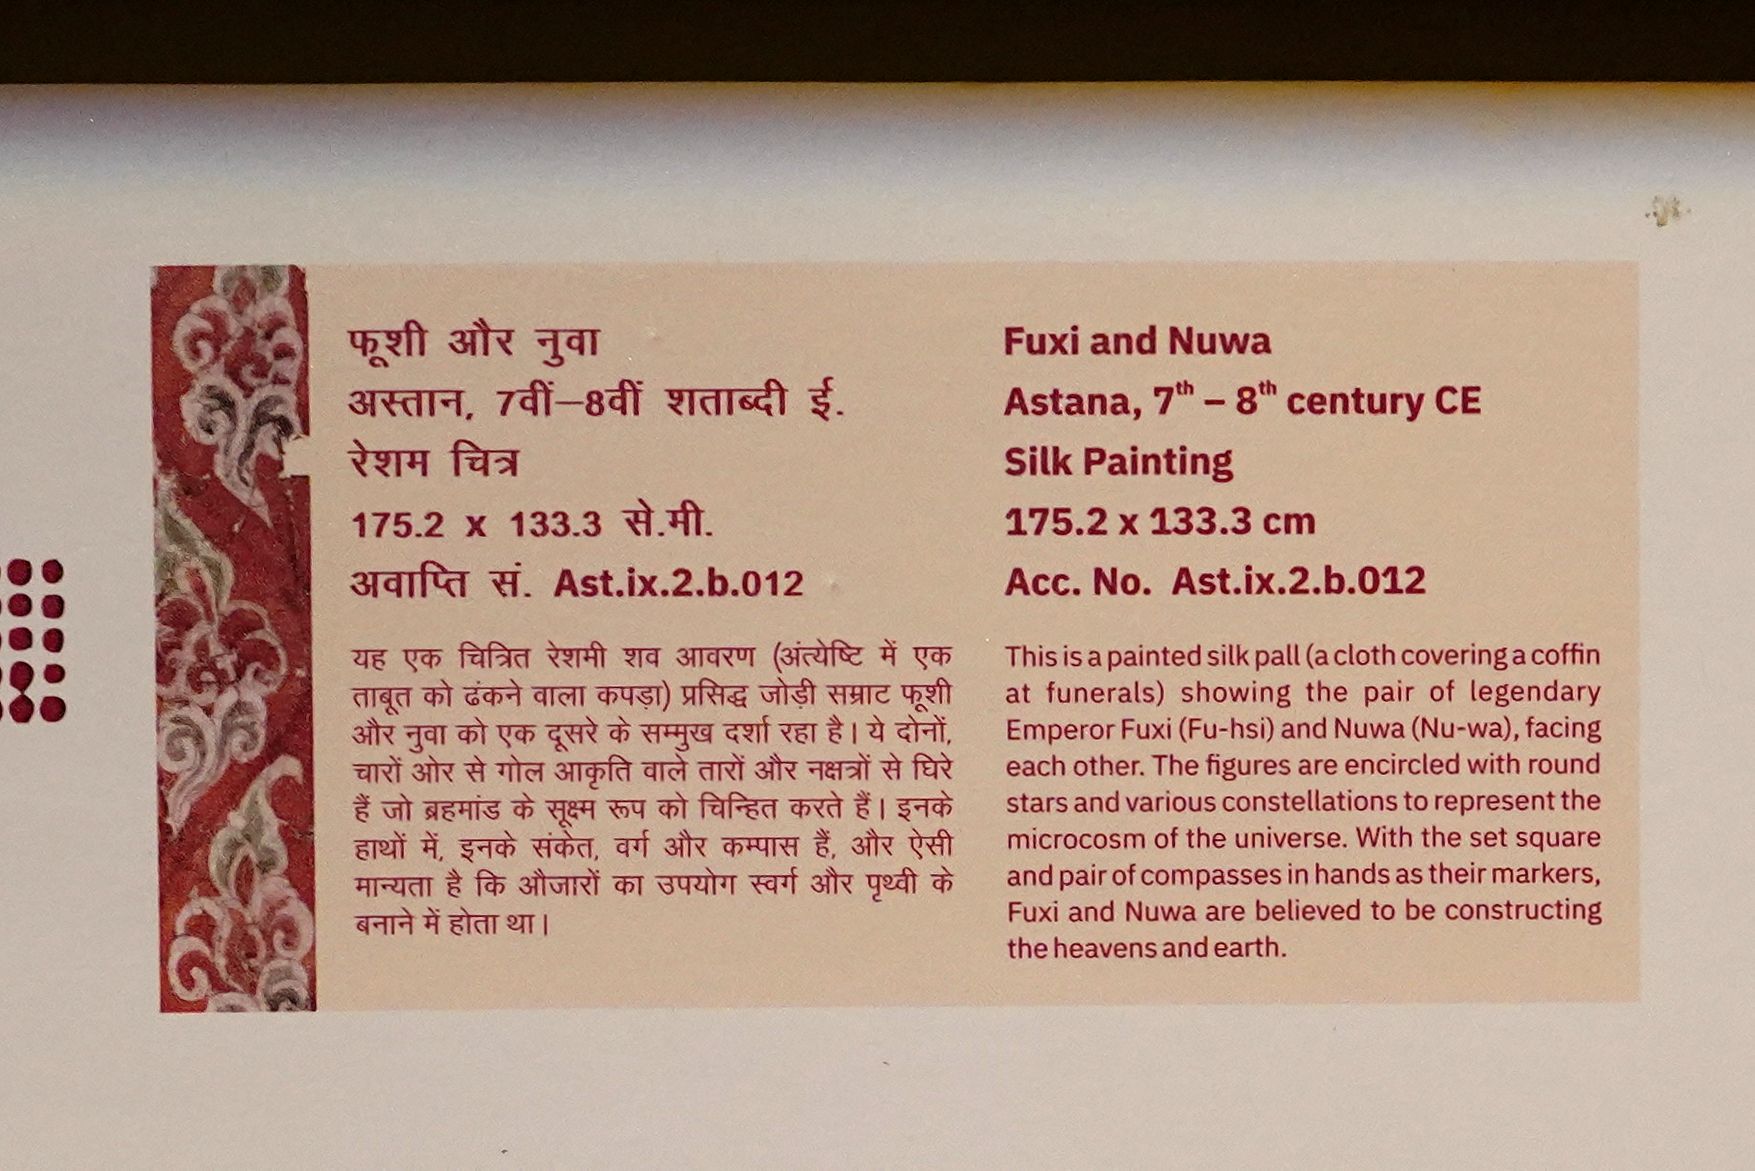 फूशी और नुवा
अस्तान, 7वीं–8वीं शताब्दी ई.
रेशम चित्र
175.2 x 133.3 से.मी.
अवाप्ति सं. Ast.ix.2.b.012
यह एक चित्रित रेशमी शव आवरण (अंत्येष्टि में एक
ताबूत को ढंकने वाला कपड़ा) प्रसिद्ध जोड़ी सम्राट फूशी
और नुवा को एक दूसरे के सम्मुख दर्शा रहा है। ये दोनों,
चारों ओर से गोल आकृति वाले तारों और नक्षत्रों से घिरे
हैं जो ब्रहमांड के सूक्ष्म रूप को चिन्हित करते हैं। इनके
हाथों में, इनके संकेत, वर्ग और कम्पास हैं, और ऐसी
मान्यता है कि औजारों का उपयोग स्वर्ग और पृथ्वी के
बनाने में होता था।
Fuxi and Nuwa
Astana, 7th – 8th century CE
Silk Painting
175.2 x 133.3 cm
Acc. No. Ast.ix.2.b.012
This is a painted silk pall (a cloth covering a coffin
at funerals) showing the pair of legendary
Emperor Fuxi (Fu-hsi) and Nuwa (Nu-wa), facing
each other. The figures are encircled with round
stars and various constellations to represent the
microcosm of the universe. With the set square
and pair of compasses in hands as their markers,
Fuxi and Nuwa are believed to be constructing
the heavens and earth.